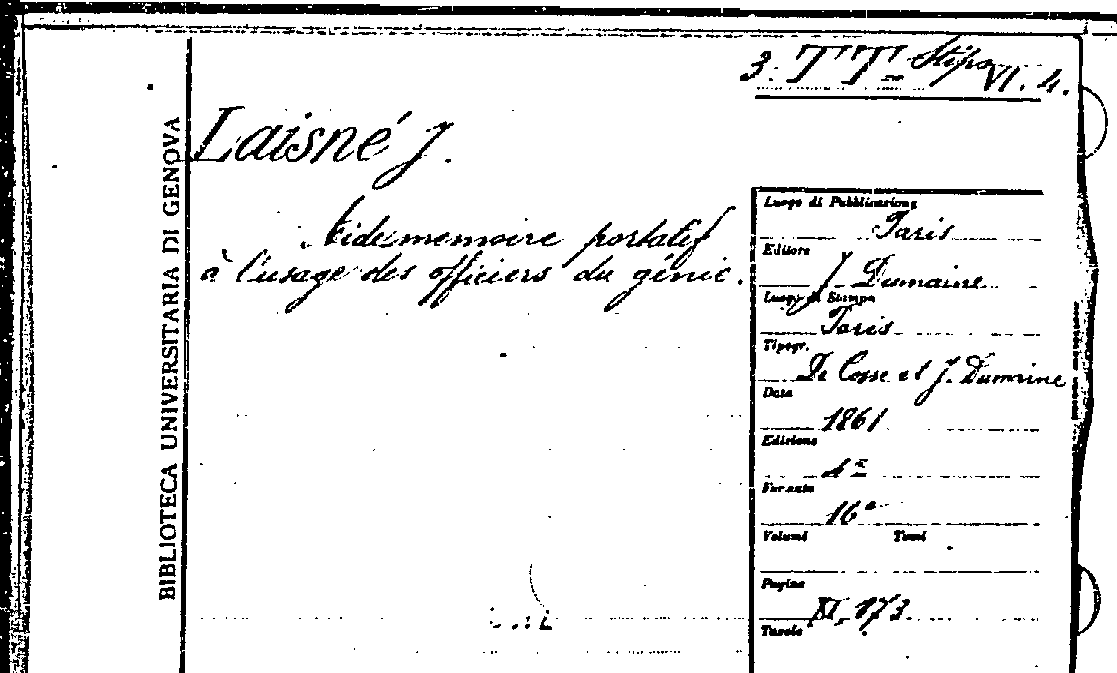 3. TT Stipo VI. 4.
BIBLIOTECA UNIVERSITARIA DI GENOVA
Laisné J.
Aide memoire portatif
à l'usage des officiers du génie.
Luogo di Pubblicazione
Paris
Editore
J. Dumaine
Luogo di Stampa
Paris
Tipogr.
De Cosse et J. Dumaine
Data
1861
Edizione
4ª
Formato
16°
Volumi Tomi
Pagine
XI, 873
Tavole